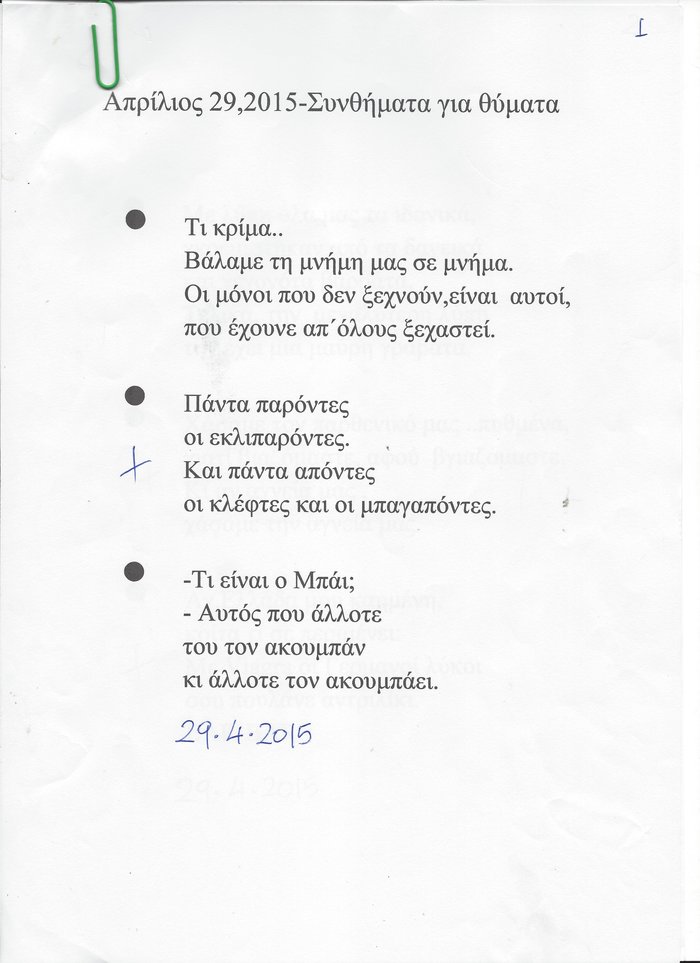 I
Απρίλιος 29,2015-Συνθήματα για θύματα
Τι κρίμα..
Βάλαμε τη μνήμη μας σε μνήμα.
Οι μόνοι που δεν ξεχνούν,είναι αυτοί,
που έχουνε απ΄όλους ξεχαστεί.
Πάντα παρόντες
οι εκλιπαρόντες.
Και πάντα απόντες
οι κλέφτες και οι μπαγαπόντες.
-Τι είναι ο Μπάι;
- Αυτός που άλλοτε
του τον ακουμπάν
κι άλλοτε τον ακουμπάει.
29.4.2015